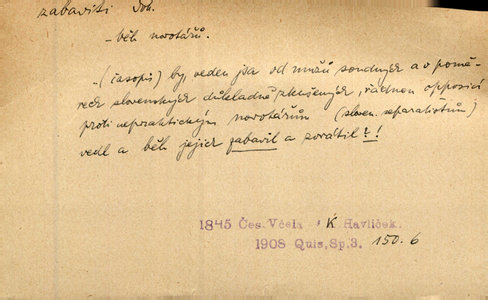 zabaviti dok.
- běh novotářů.
- (časopis) by, veden jsa od mužů soudných a v pomě-
rech slovenských důkladně zkušených, řádnou opposici
proti nepraktickým novotářům (sloven. separatistům)
vedl a běh jejich zabavil a zvrátil?!
1845 Čes. Včela K Havlíček.
1908 Quis, Sp.3. 150.6